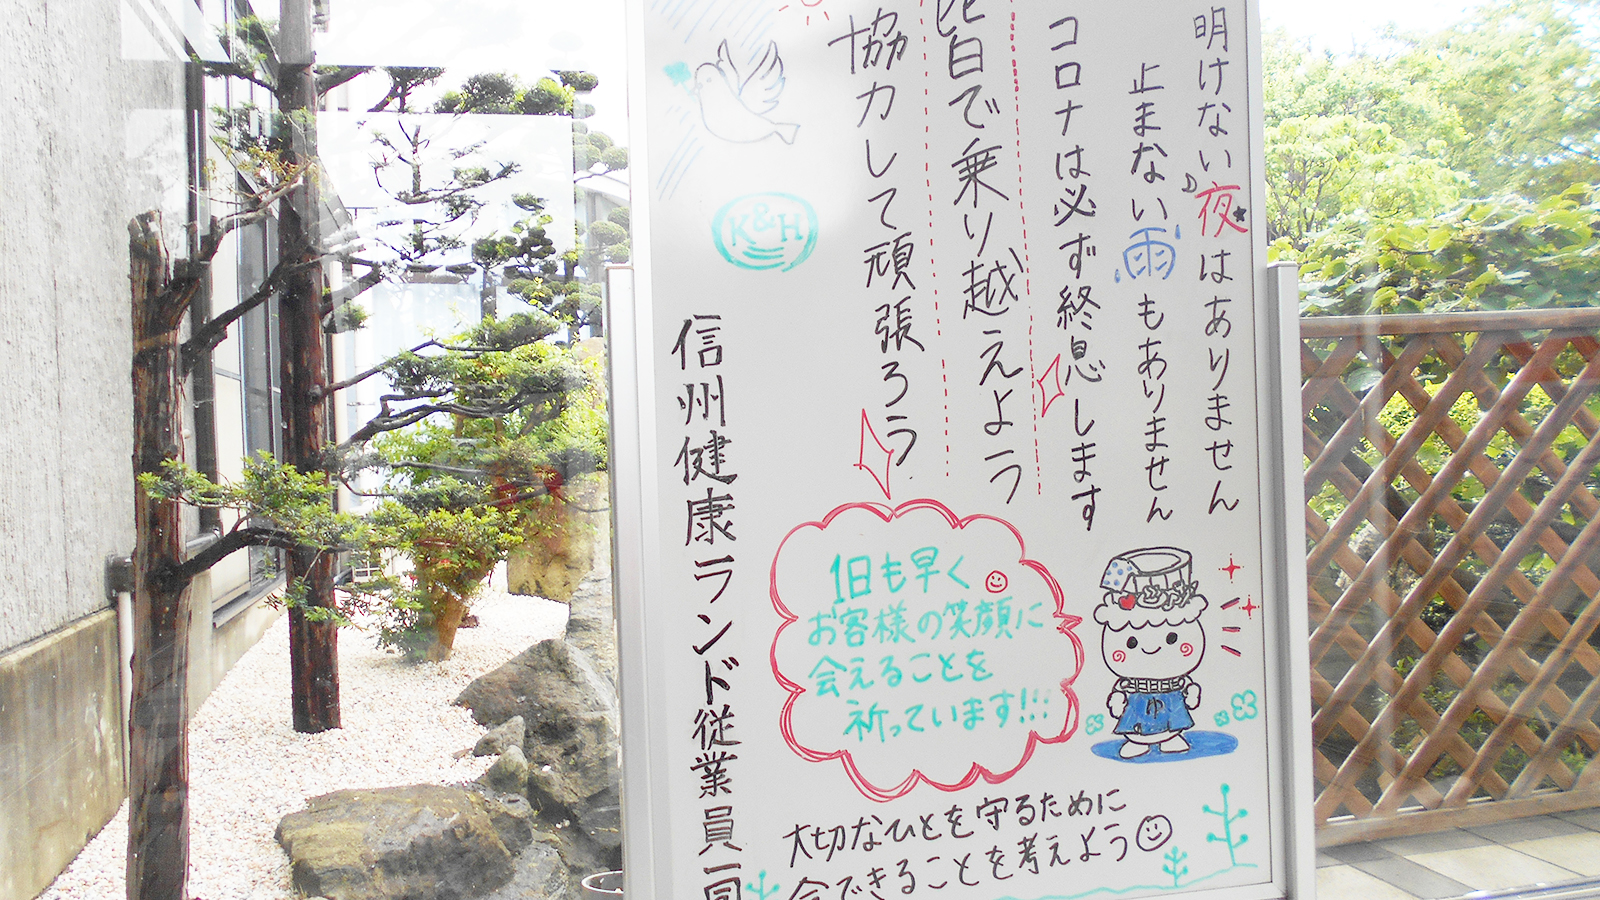 明けない夜はありません
止まない雨もありません
コロナは必ず終息します
皆で乗り越えよう
協力して頑張ろう
K&H
信州健康ランド従業員一同
1日も早く
お客様の笑顔に
会えることを
祈っています!!!
ゆ
大切なひとを守るために
今できることを考えよう